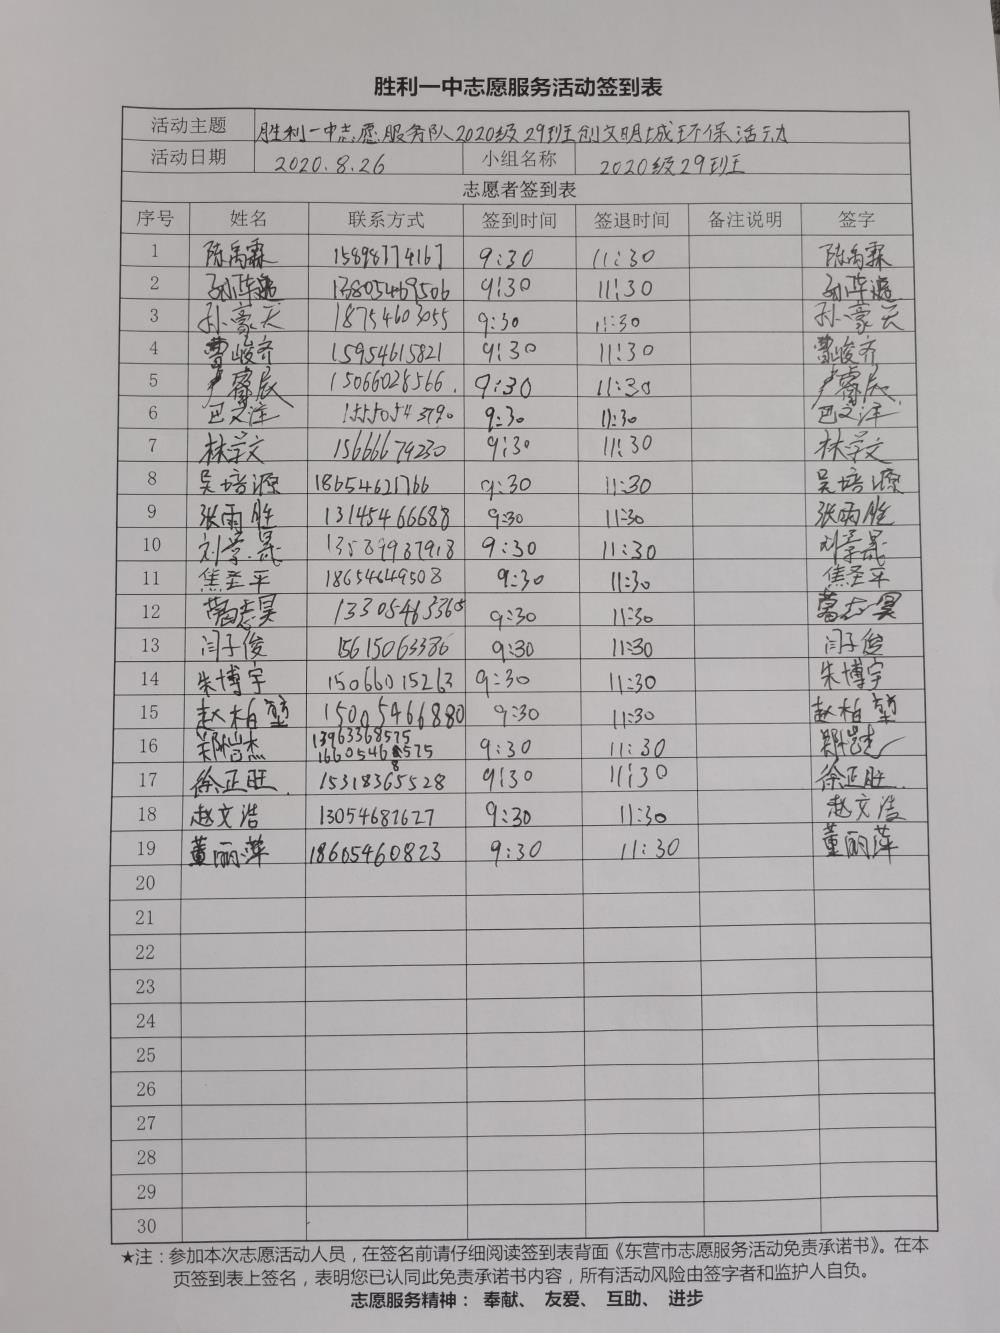 胜利一中志愿服务活动签到表
活动主题 胜利一中志愿服务队2020级29班创文明城环保活动
活动日期 2020.8.26 小组名称 2020级29班
志愿者签到表
序号 姓名 联系方式 签到时间 签退时间 备注说明 签字
1 陈禹霖 15898774167 9:30 11:30 陈禹霖
2 13805469506 9:30 11:30
3 孙豪天 18754603055 9:30 11:30 孙豪天
4 曹峻齐 15954615821 9:30 11:30 曹峻齐
5 严睿辰 15066028566. 9:30 11:30 严睿辰
6 巴文洋 15550543790 9:30 11:30 巴文洋
7 林学文 15666674230 9:30 11:30 林学文
8 吴培源 18654621766 9:30 11:30 吴培源
9 张雨胜 13145466688 9:30 11:30 张雨胜
10 刘景晟 13589987918 9:30 11:30 刘景晟
11 焦圣平 18654649508 9:30 11:30 焦圣平
12 葛志昊 13305463365 9:30 11:30 葛志昊
13 闫子俊 15615063386 9:30 11:30 闫子俊
14 朱博宇 15066015263 9:30 11:30 朱博宇
15 赵柏堃 15005466880 9:30 11:30 赵柏堃
16 郑皆杰 13963368575 9:30 11:30
17 徐正旺. 15318365528 9:30 11:30 徐正旺.
18 赵文浩 13054687627 9:30 11:30 赵文浩
19 董丽萍 18605460823 9:30 11:30 董丽萍
20
21
22
23
24
25
26
27
28
29
30
★注：参加本次志愿活动人员，在签名前请仔细阅读签到表背面《东营市志愿服务活动免责承诺书》。在本
页签到表上签名，表明您已认同此免责承诺书内容，所有活动风险由签字者和监护人自负。
志愿服务精神： 奉献、 友爱、 互助、 进步